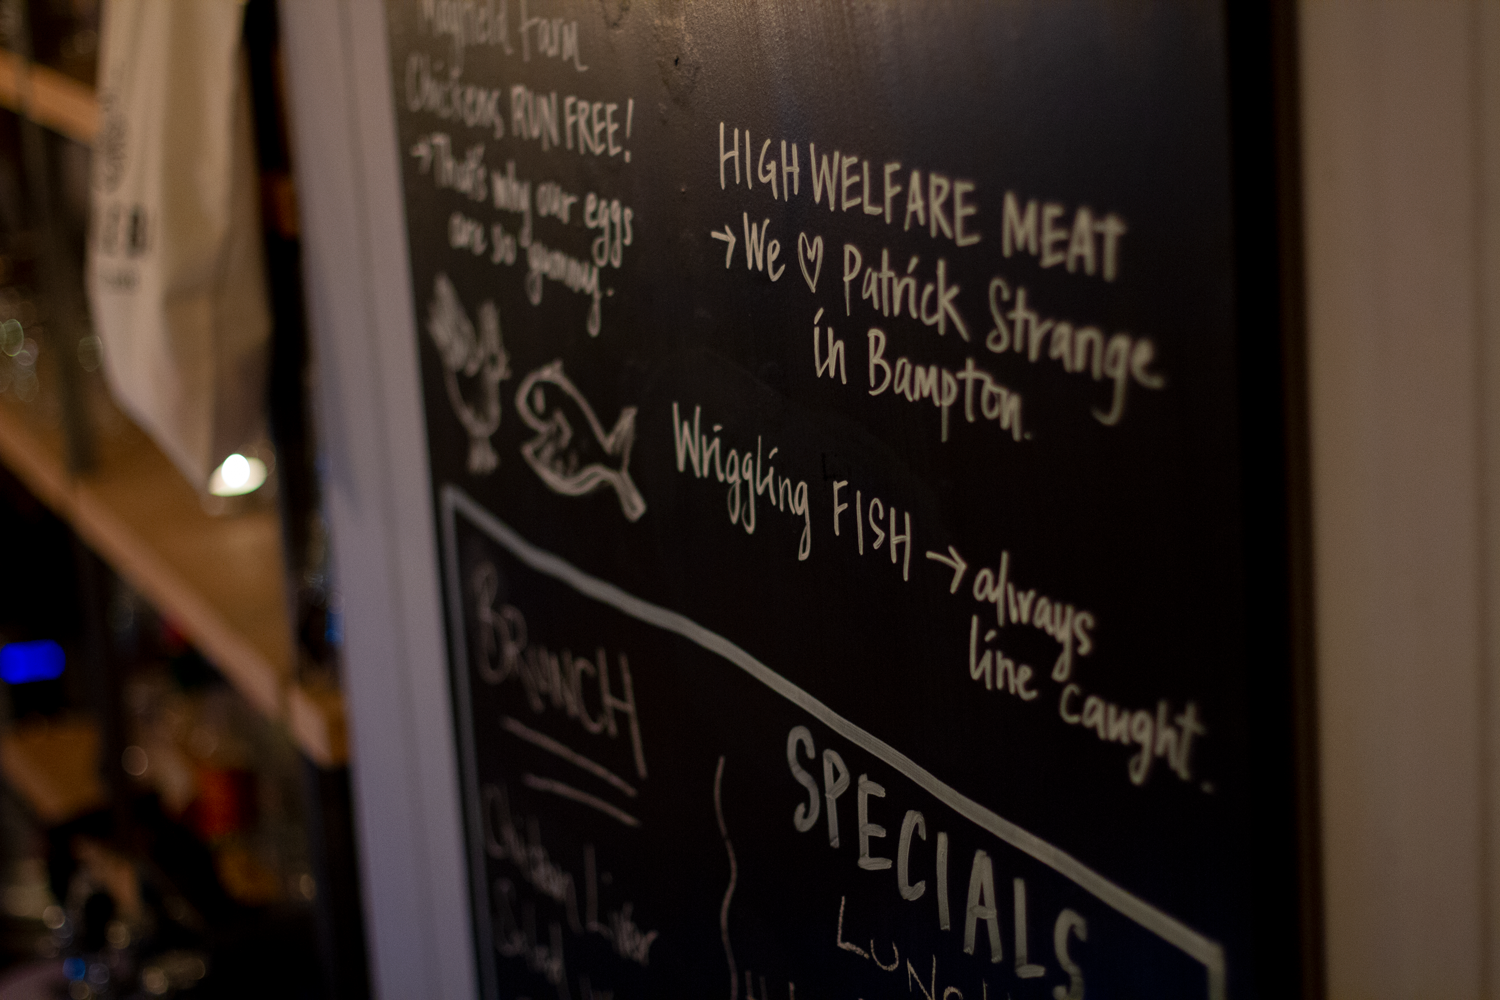 Mayfield Farm
Chickens RUN FREE!
→ That's why our eggs
are so yummy.
HIGH WELFARE MEAT
→ We ♡ Patrick Strange
in Bampton.
Wriggling FISH → always
line caught.
BRUNCH
Chicken Liver
Salad
SPECIALS